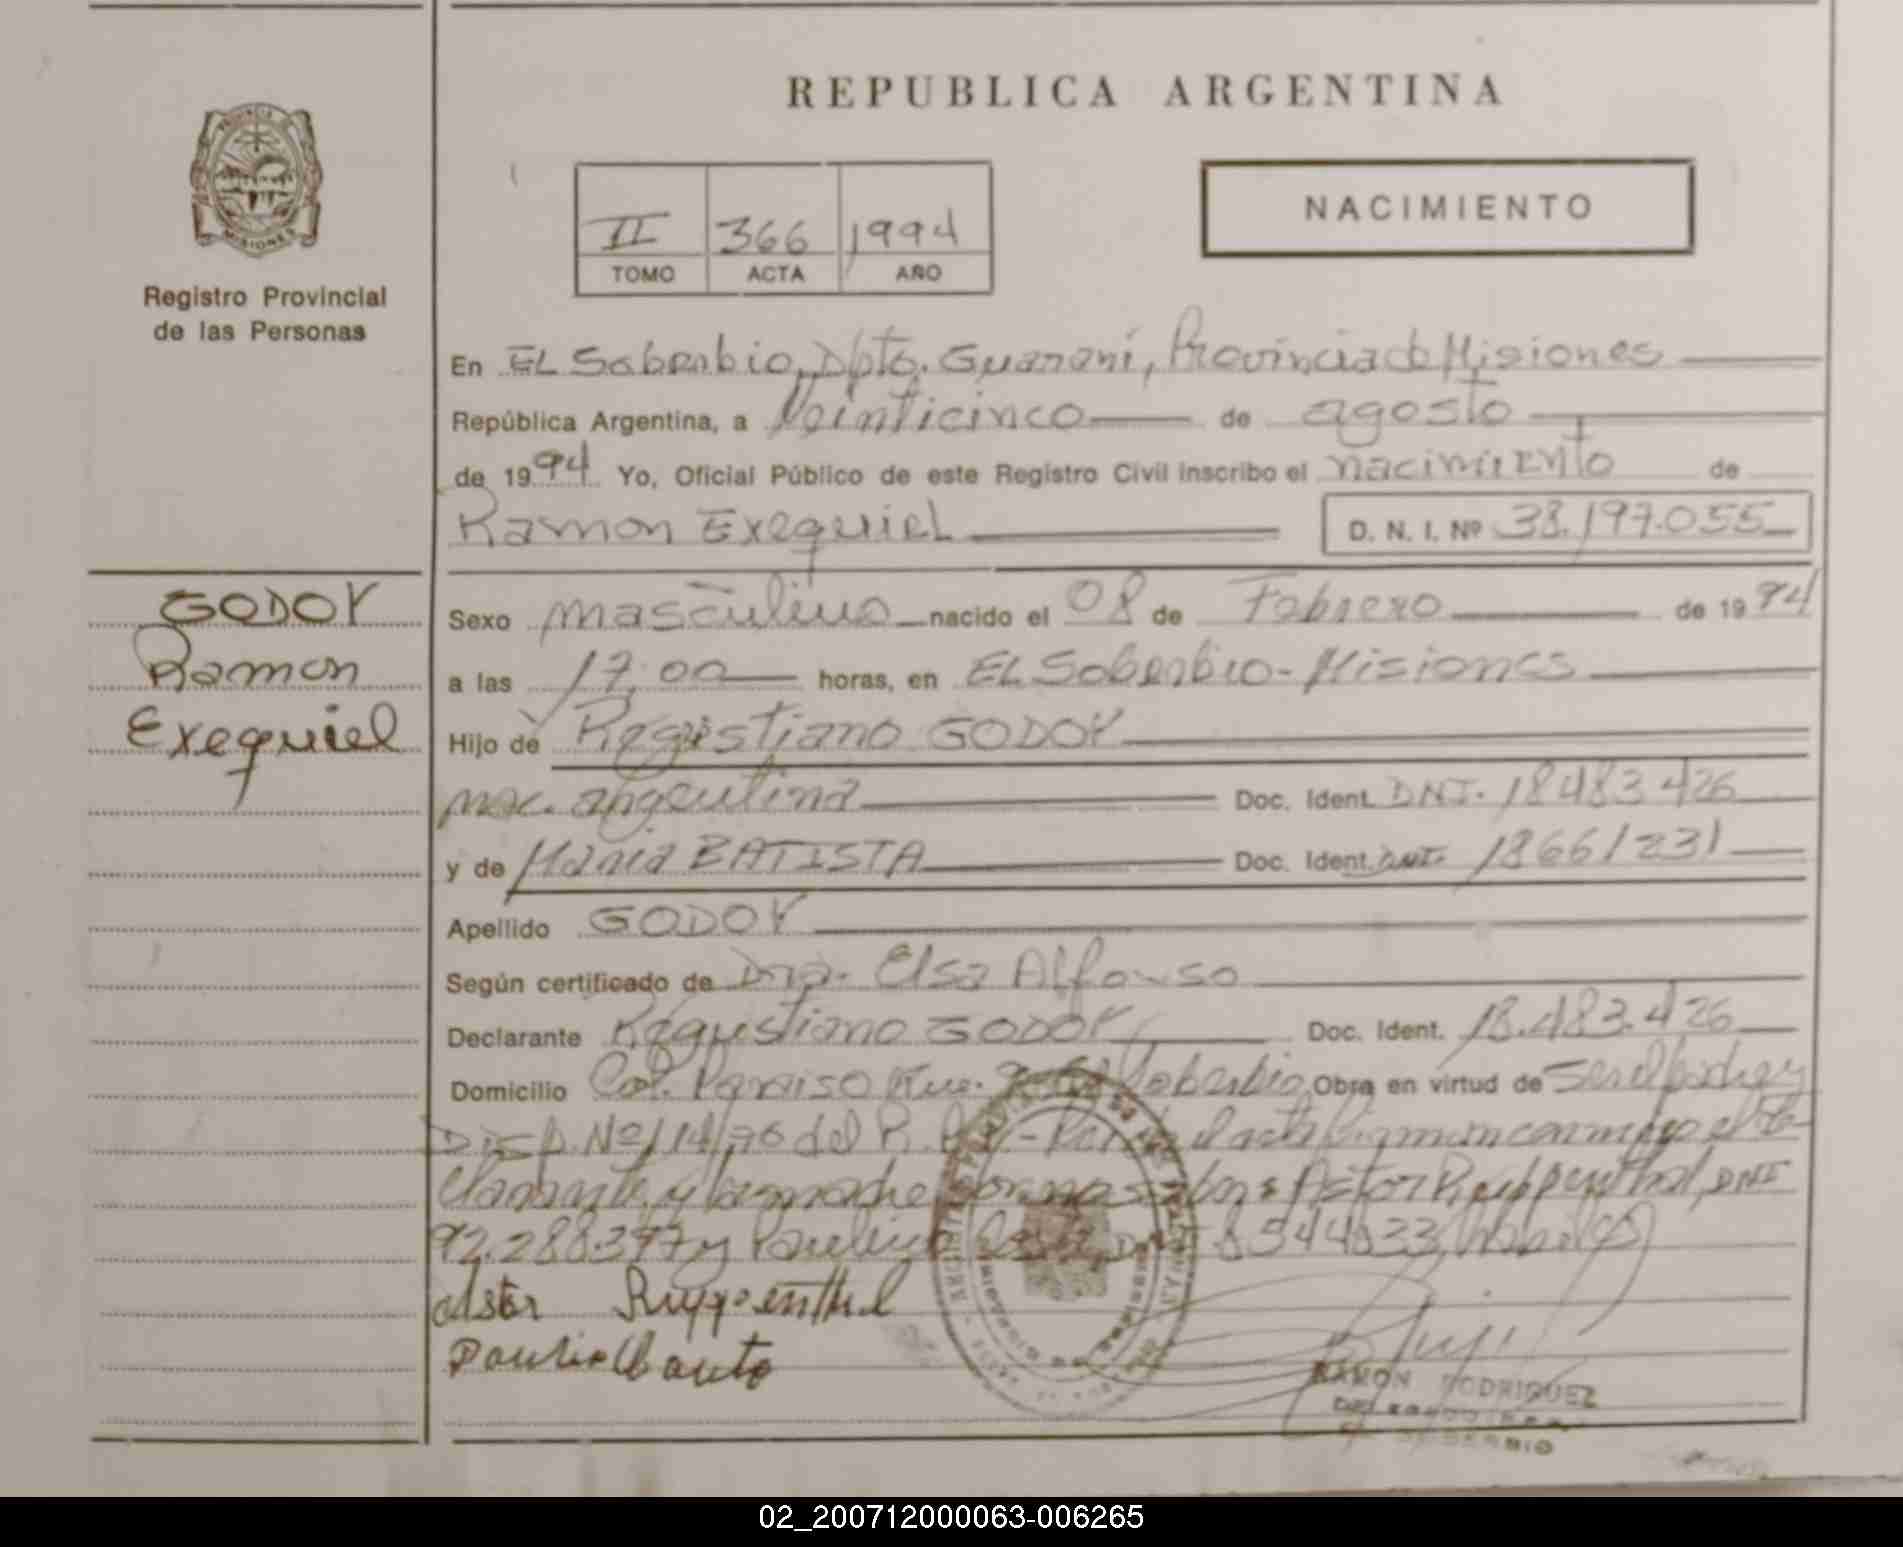 REPUBLICA ARGENTINA
PROVINCIA DE
MISIONES
Registro Provincial
de las Personas
II 366 1994
TOMO ACTA AÑO
NACIMIENTO
En EL Soberbio, Dpto. Guaraní, Provincia de Misiones
República Argentina, a Veinticinco de agosto
de 1994 Yo, Oficial Público de este Registro Civil inscribo el nacimiento de
Ramon Exequiel D. N. I. Nº 38.197.055
GODOY
Ramon
Exequiel
Sexo masculino nacido el 08 de Febrero de 1994
a las 17,00 horas, en EL Soberbio - Misiones
Hijo de Regustiano GODOY
nac. argentina Doc. Ident. DNI. 18483426
y de Maria BATISTA Doc. Ident. DNI. 18661231
Apellido GODOY
Según certificado de Dra. Elsa Alfonso
Declarante Regustiano GODOY Doc. Ident. 18.483.426
Domicilio Col. Paraiso Soberbio Obra en virtud de
Disp. Nº 114/76 del R. firman conmigo el de
clarante y la madre Astor Ruppenthal, DNI
92.288.397 y Paulino 8544033
Astor Ruppenthal
RAMON RODRIGUEZ
SOBERBIO
02_200712000063-006265